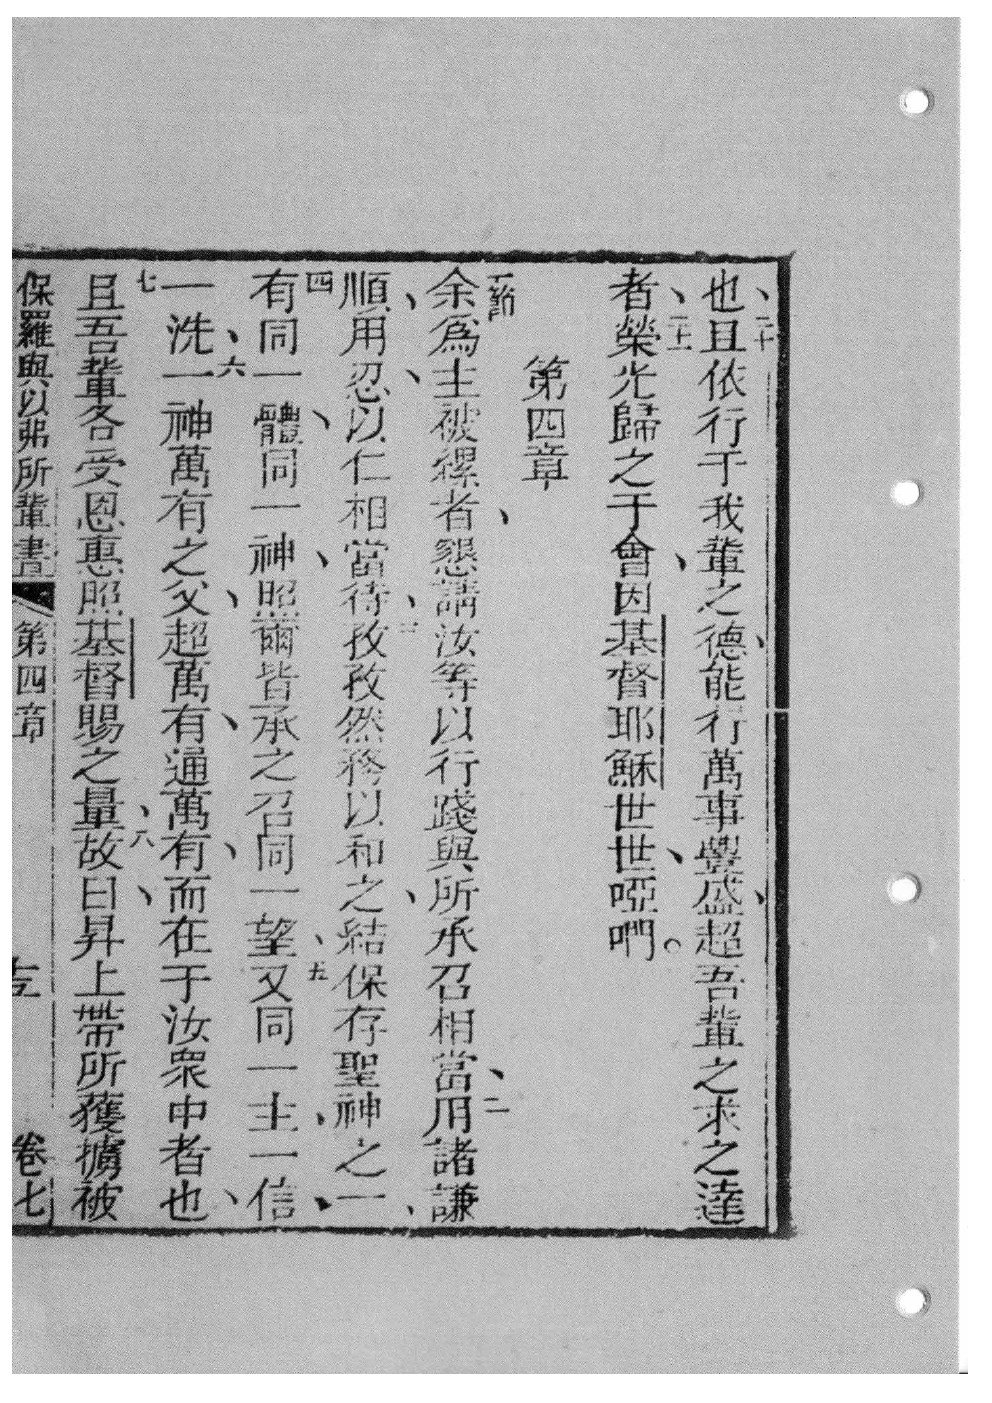 也、二十且依行于我輩之德、能行萬事豐盛、超吾輩之求之達
者、二十一榮光歸之于會、因基督耶穌世世、啞呬。
第四章
一節余爲主被縲者、懇請汝等以行踐與所承召相當、二用諸謙
順、用忍、以仁相當待、三孜孜然務以和之結、保存聖神之一、
四有同一體、同一神、照爾皆承之召同一望、五又同一主、一信、
一洗、六一神萬有之父、超萬有、通萬有、而在于汝衆中者也、
七且吾輩各受恩惠照基督賜之量、八故曰、昇上帶所獲擄被
保羅與以弗所輩書 第四章 卷七